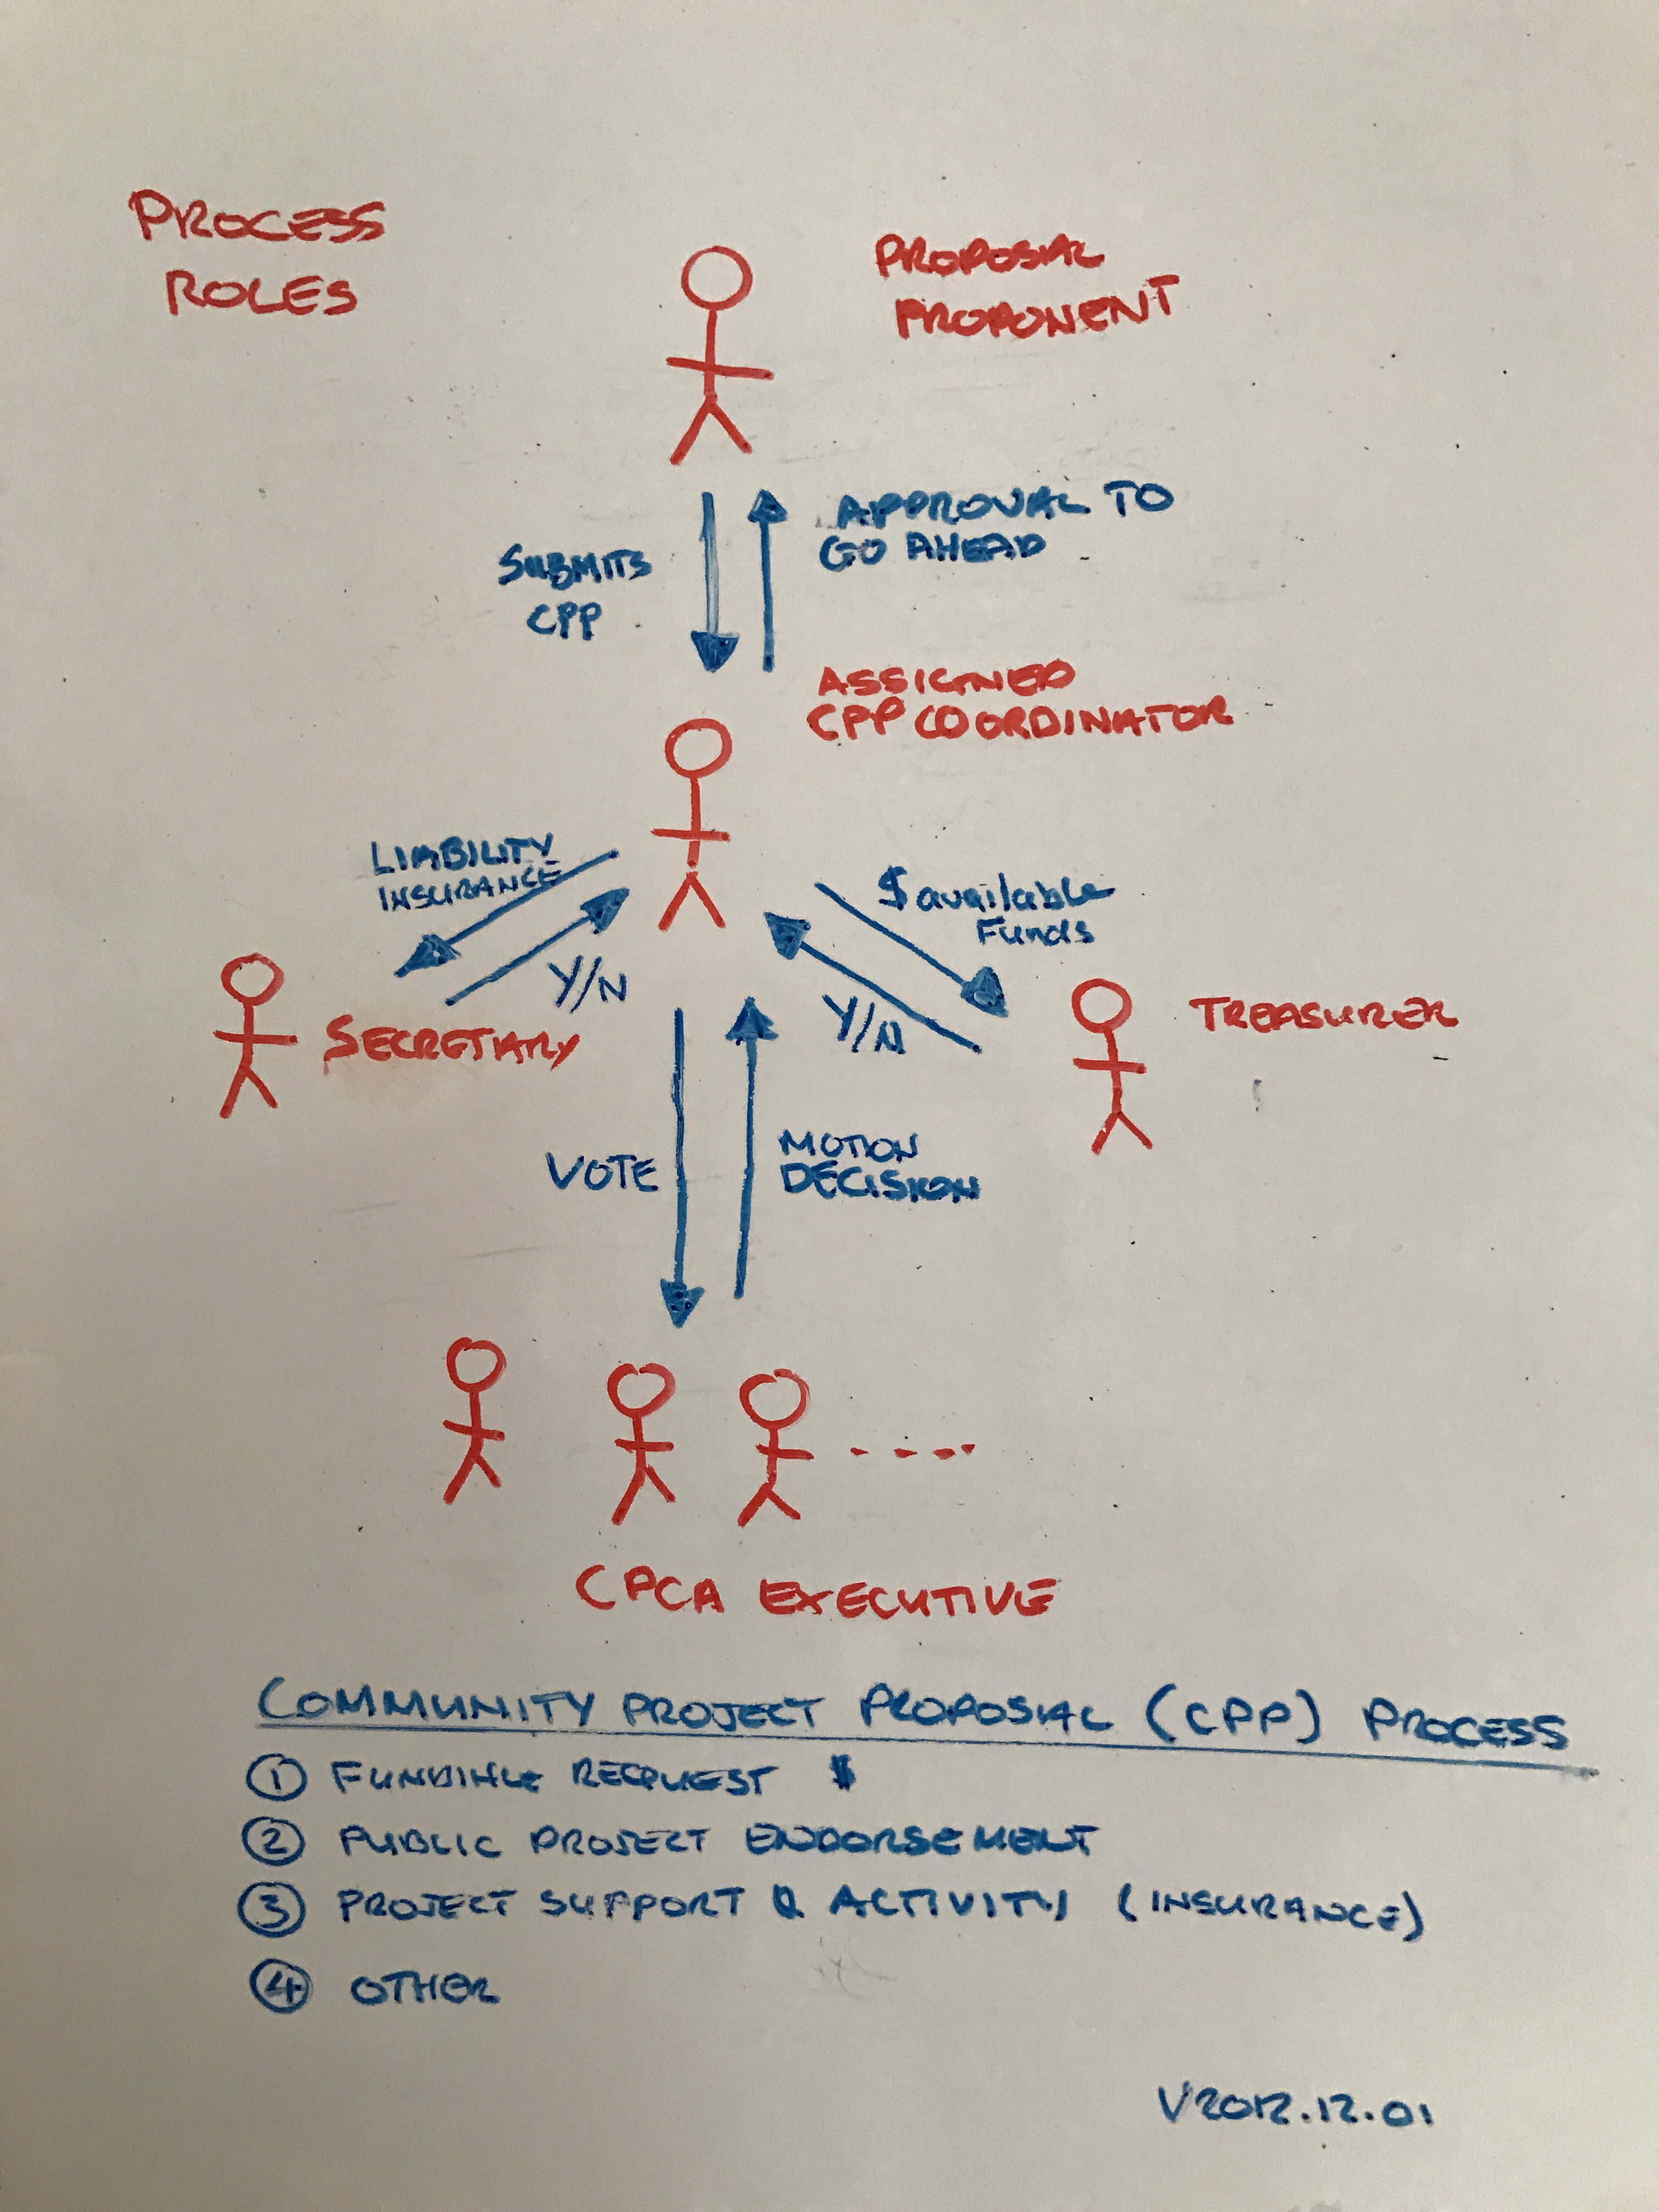 PROCESS
ROLES
PROPOSAL
PROPONENT
APPROVAL TO
GO AHEAD
SUBMITS
CPP
ASSIGNED
CPP COORDINATOR
LIABILITY
INSURANCE
$ available
Funds
Y/N
Y/N
SECRETARY
TREASURER
VOTE
MOTION
DECISION
CPCA EXECUTIVE
COMMUNITY PROJECT PROPOSAL (CPP) PROCESS
① FUNDING REQUEST $
② PUBLIC PROJECT ENDORSEMENT
③ PROJECT SUPPORT & ACTIVITY (INSURANCE)
④ OTHER
V2012.12.01